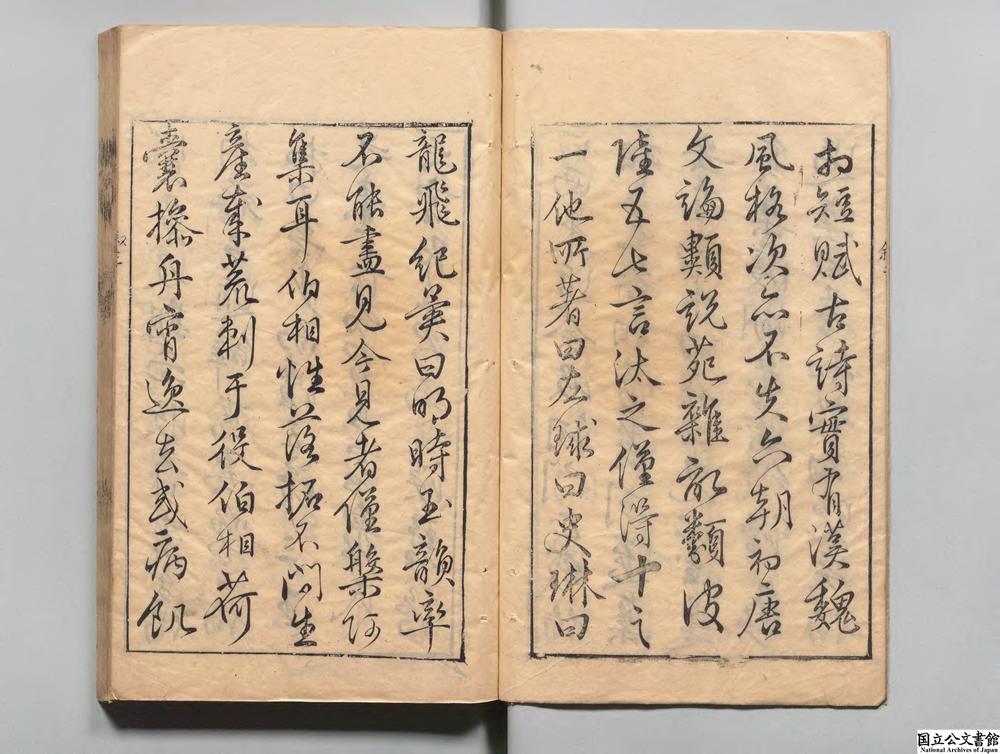 相短賦古詩實有漢魏
風格次亦不失六朝初唐
文論類說苑雜歌類波
陸五七言汰之僅得十之
一他所著曰左球曰史琳曰
龍飛紀異曰明時玉韻率
不能盡見今見者僅槃阿
集耳伯相性落拓不問生
產峯荒剩于役伯相荷
囊操丹宵逸去或病飢
国立公文書館
National Archives of Japan